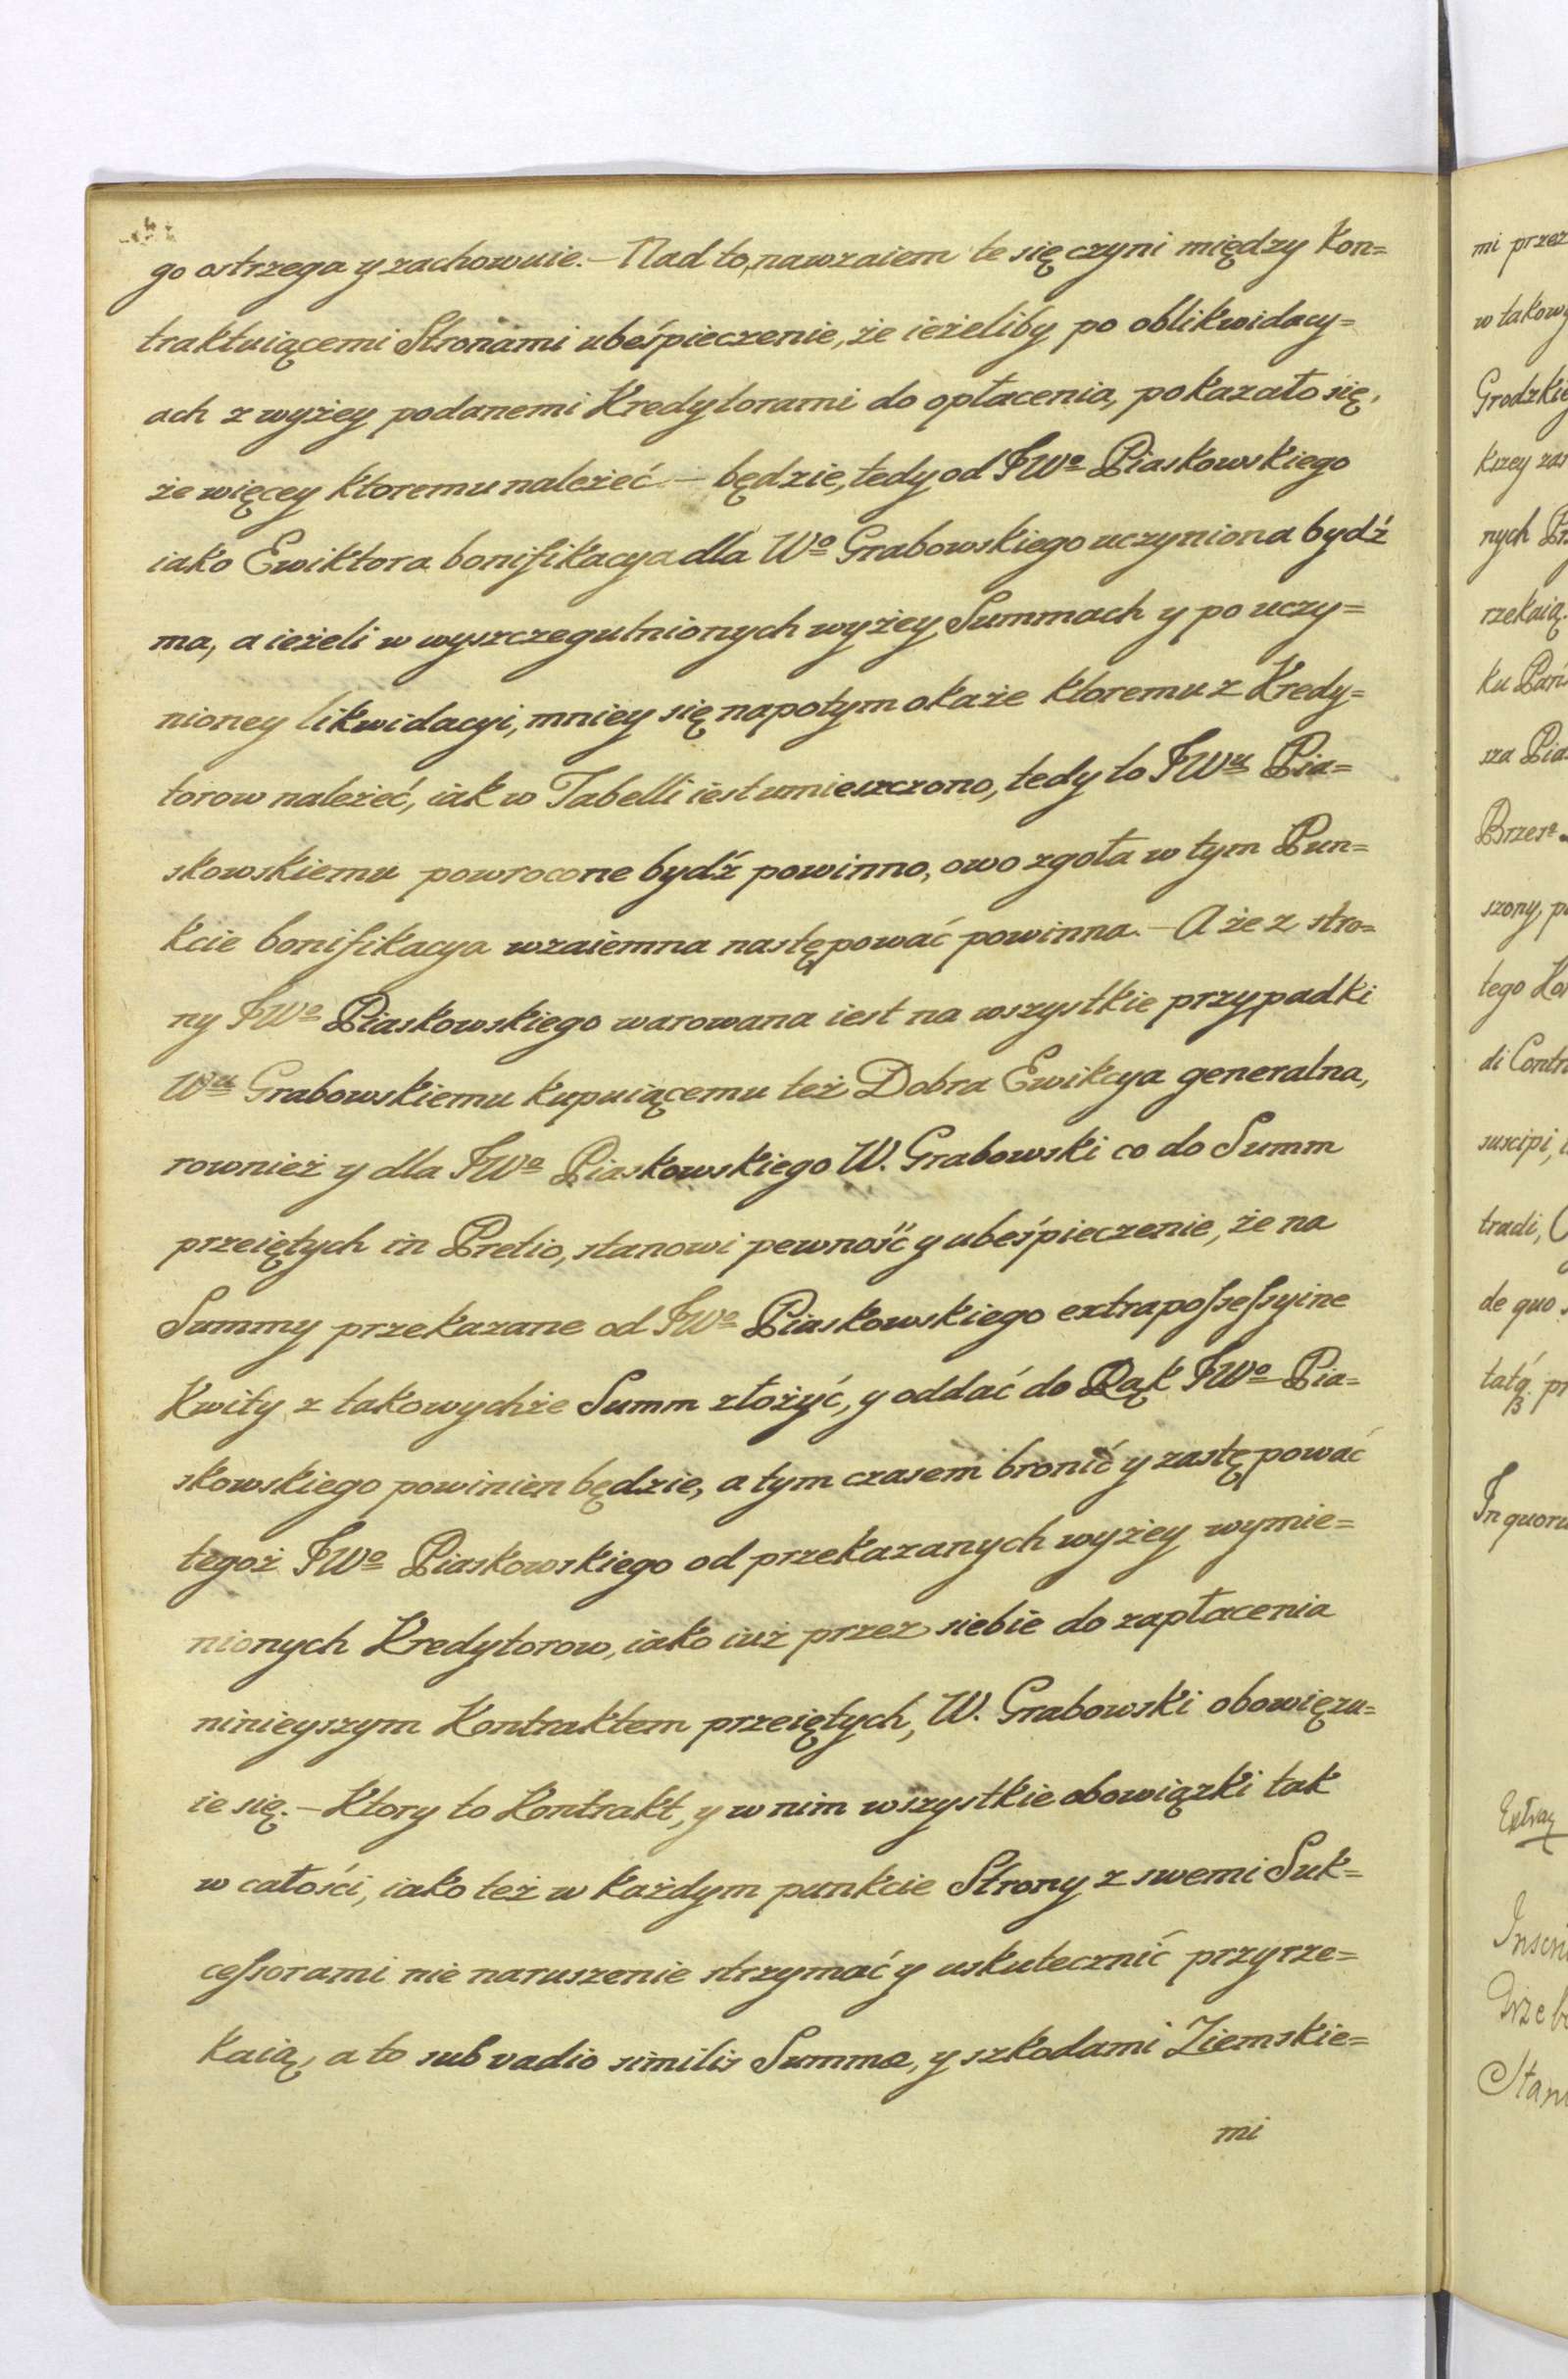 go ostrzega y zachowuie. – Nad to, nawzaiem te się czyni między Kon=
traktuiącemi Stronami ubeśpieczenie, że ieżeliby po oblikwidacy=
ach z wyżey podanemi Kredytorami do opłacenia, pokazało się,
że więcey ktoremu należeć – będzie, tedy od JWº Piaskowskiego
iako Ewiktora bonifikacya dla Wº Grabowskiego uczyniona bydź
ma, a ieżeli w wyszczegulnionych wyżey Summach y po uczy=
nioney likwidacyi, mniey się napotym okaże ktoremu z Kredy=
torow należeć, iak w Tabelli iest umieszczono, tedy to JWu Pia=
skowskiemu powrocone bydź powinno, owo zgoła w tym Pun=
kcie bonifikacya wzaiemna następować powinna. – A że z stro=
ny JWº Piaskowskiego warowana iest na wszystkie przypadki
Wu Grabowskiemu kupuiącemu też Dobra Ewikcya generalna,
rownież y dla JWº Piaskowskiego W. Grabowski co do Summ
przeiętych in Pretio, stanowi pewność y ubeśpieczenie, że na
Summy przekazane od JWº Piaskowskiego extrapossessyine
Kwity z takowychże Summ złożyć, y oddać do Rąk JWº Pia=
skowskiego powinien będzie, a tym czasem bronić y zastępować
tegoż JWº Piaskowskiego od przekazanych wyżey wymie=
nionych Kredytorow, iako iuż przez siebie do zapłacenia
ninieyszym Kontraktem przeiętych, W. Grabowski obowięzu=
ie się. – Ktory to Kontrakt, y w nim wszystkie obowiązki tak
w całości, iako też w każdym punkcie Strony z swemi Suk=
cessorami nie naruszenie strzymać y uskutecznić przyrze=
kaią, a to sub vadio similis Summæ, y szkodami Ziemskie=
mi
mi przez
w takow
Grodzkie
kszey zar
nych
rzekaią.
ku
sza Pia
Brzesº
szony, p
tego Kon
di Contr
suscipi,
tradi,
de quo
pr
In quoru
Inscri
Stan